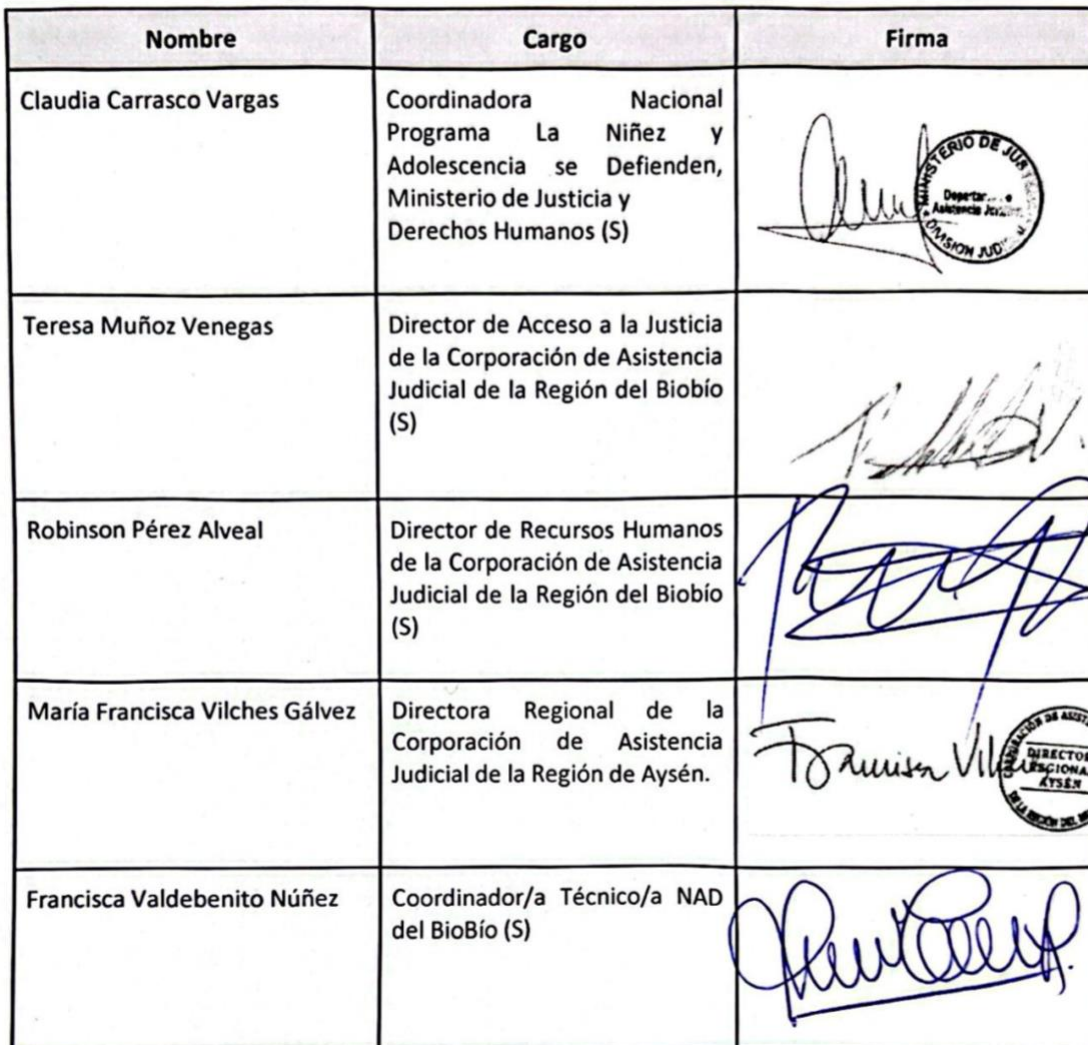 Nombre Cargo Firma
Claudia Carrasco Vargas
Coordinadora Nacional
Programa La Niñez y
Adolescencia se Defienden,
Ministerio de Justicia y
Derechos Humanos (S)
MINISTERIO DE JUS
Asistencia
DIVISION JUD
Teresa Muñoz Venegas
Director de Acceso a la Justicia
de la Corporación de Asistencia
Judicial de la Región del Biobío
(S)
Robinson Pérez Alveal
Director de Recursos Humanos
de la Corporación de Asistencia
Judicial de la Región del Biobío
(S)
María Francisca Vilches Gálvez
Directora Regional de la
Corporación de Asistencia
Judicial de la Región de Aysén.
Francisca
DIRECTOR
REGIONA
AYSÉN
DE LA REGIÓN DEL
Francisca Valdebenito Núñez
Coordinador/a Técnico/a NAD
del BioBío (S)